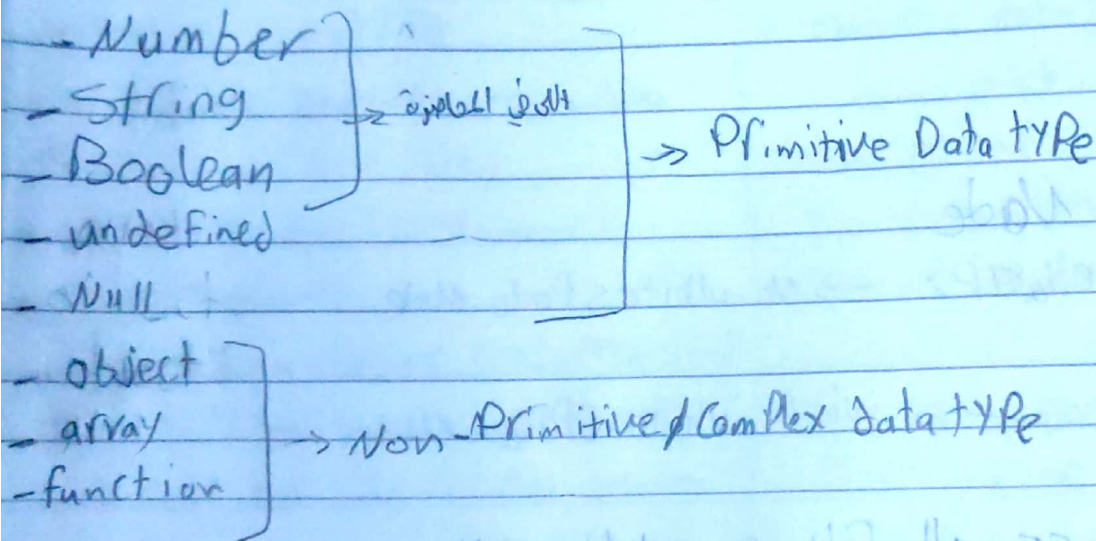 - Number
- String
- Boolean
→ اللي في المحاضرة
- undefined
- Null
→ Primitive Data type
- object
- array
- function
→ Non-Primitive / Complex data type